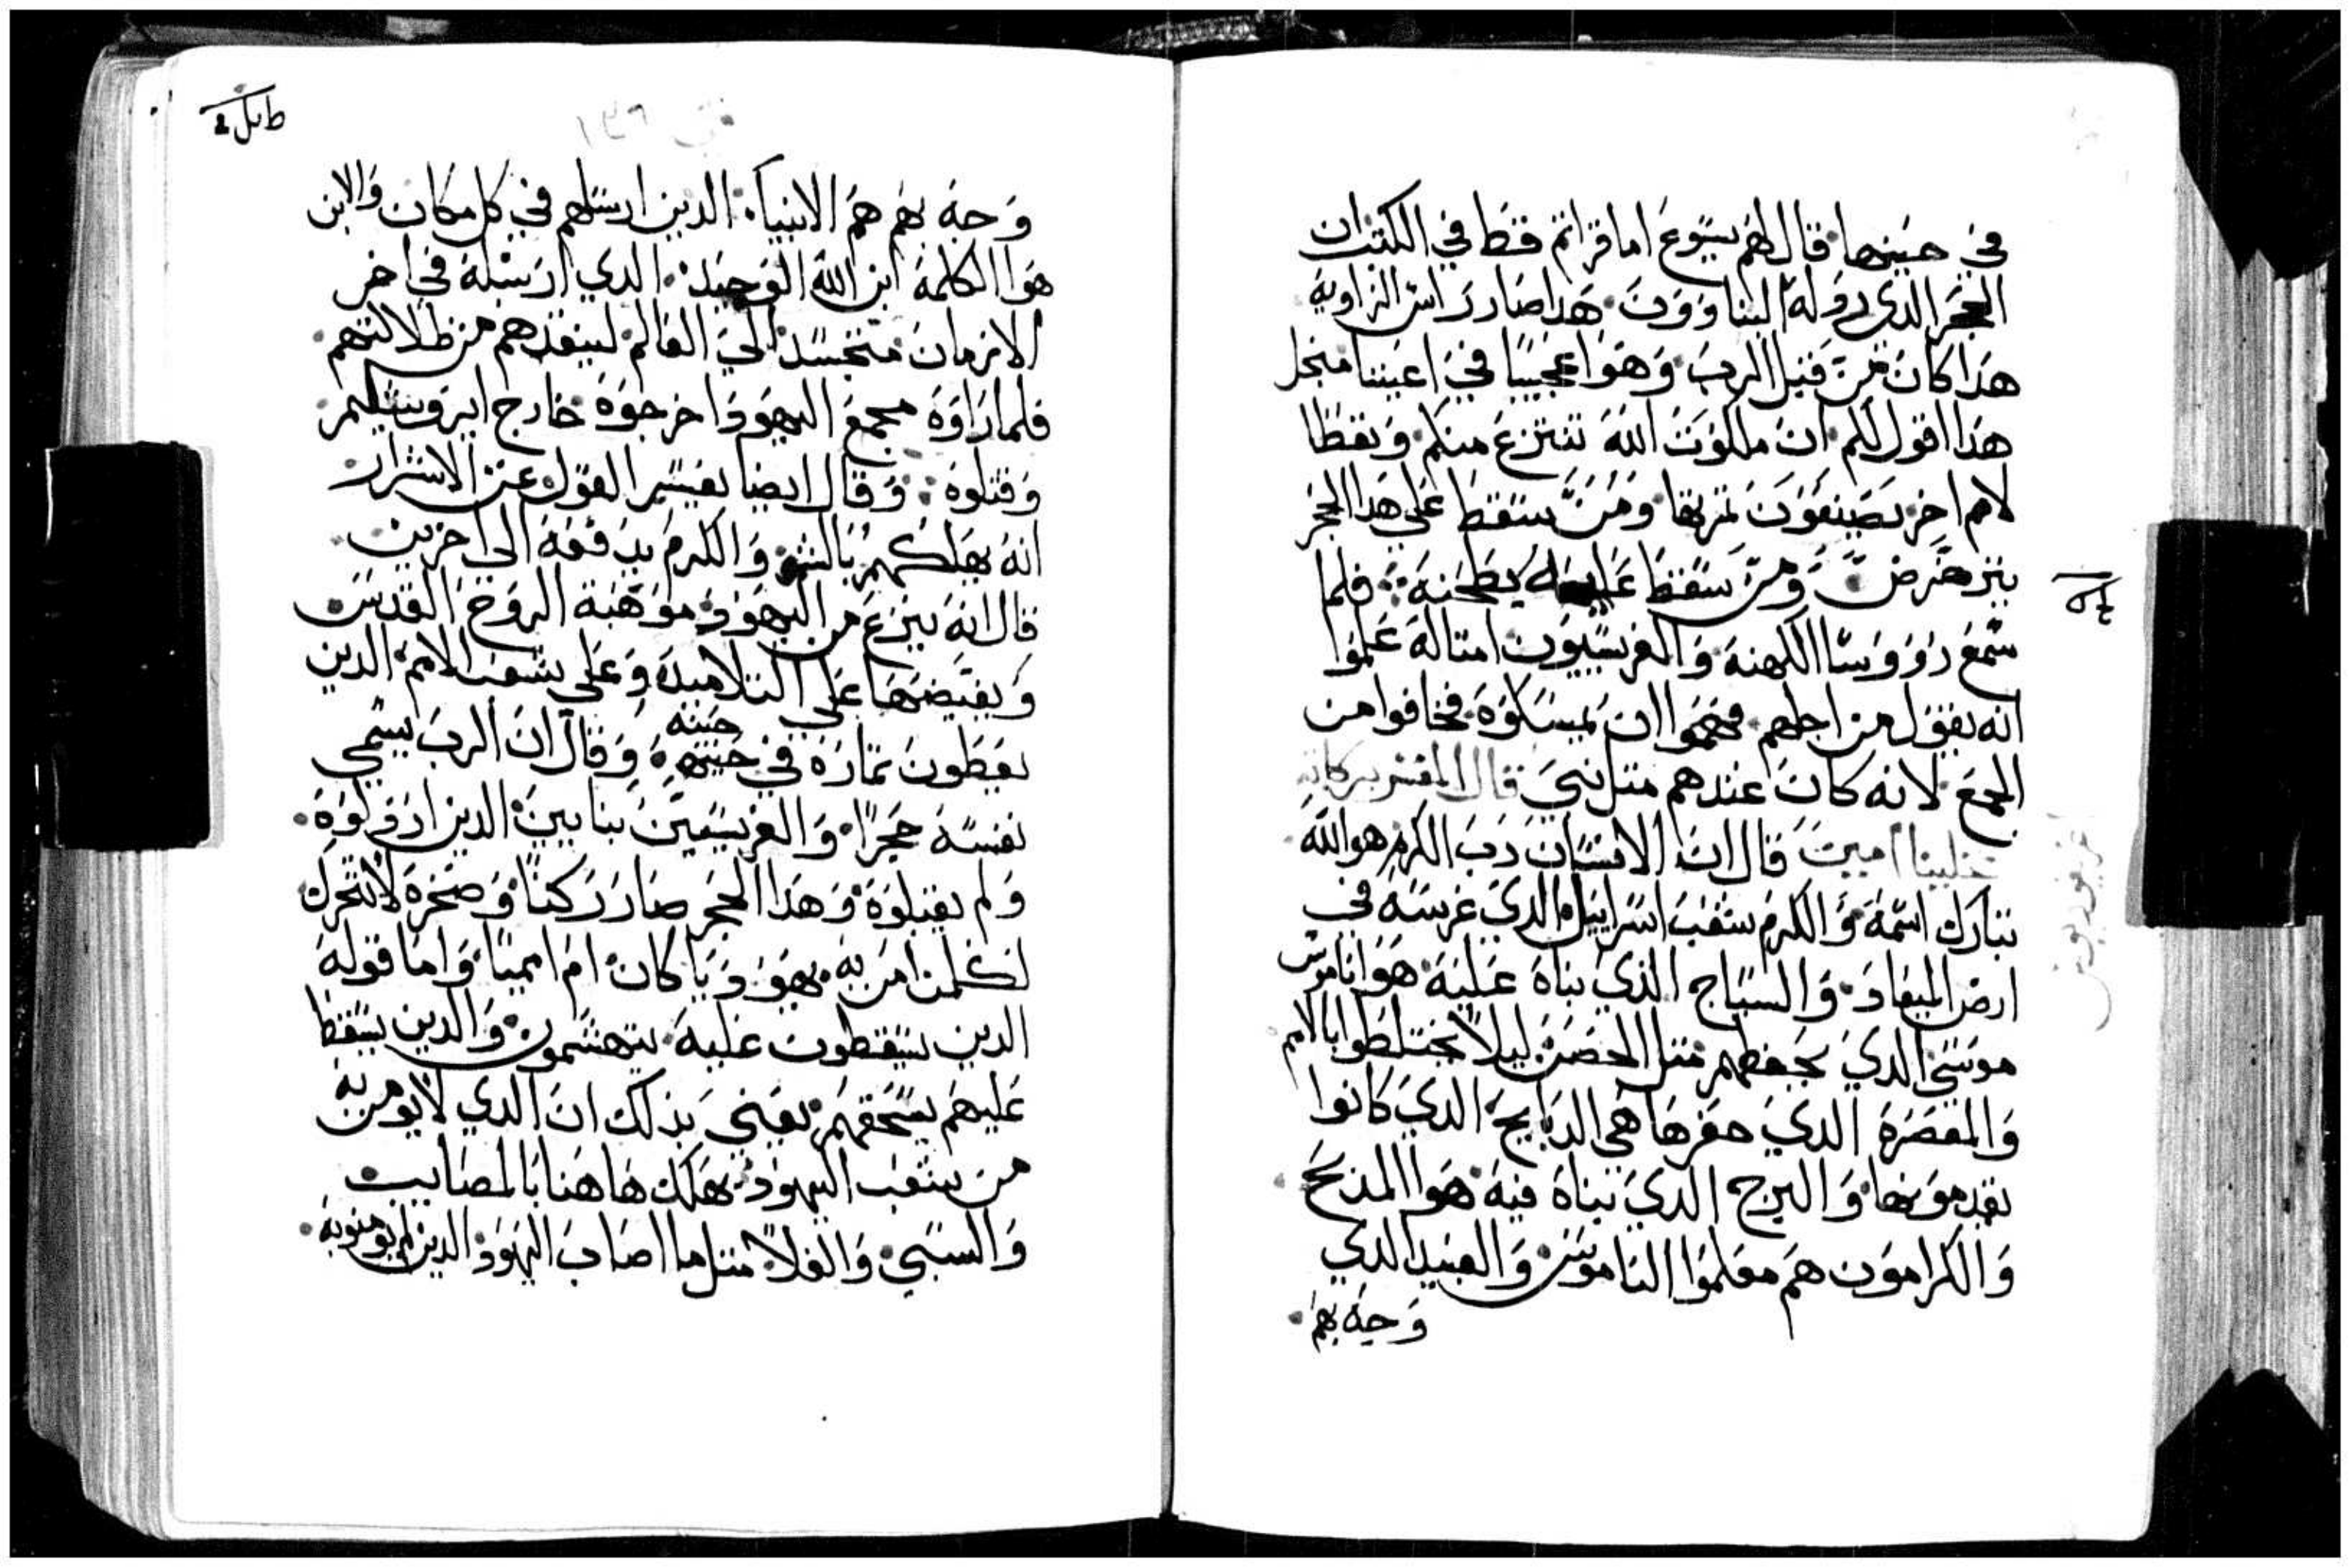 في حينها قال لهم يسوع اما قراتم قط في الكتب ان
الحجر الدي ردوله البناوون هدا صار راس الزاوية
هدا كان من قبل الرب وهوا عجيبا في اعيننا منجل
هدا اقول لكم ان ملكوت الله تنتزع منكم وتعطا
لامم اخر يصنعون تمرتها ومن سقط علي هدا الحجر
يترضرض ومن سقط عليه يطحنه فلما
سمع رووسا الكهنة والفريسيون امتاله علموا
انه يقول من اجلهم فهموا ان يمسكوه فخافوا من
الجمع لانه كان عندهم متل نبي قال المفسر بركاته
علينا امين قال ان الانسان رب الكرم هو الله
تبارك اسمه والكرم شعب اسراييل الدي غرسه في
ارض الميعاد والسياج الذي بناه عليه هوا ناموس
موسي الدي يحفظهم متل الحصن ليلا يختلطوا بالامم
والمعصرة الدي حفرها هي الدبايح الدي كانوا
يقدموها والبرج الدي بناه فيه هوا المدبح
والكرامون هم معلموا الناموس والعبيد الدي
وجه بهم
وجه بهم هم الانبياء الدين ارسلهم في كل مكان والابن
هوا الكلمة ابن الله الوحيد الدي ارسله في اخر
الازمان متجسد الي العالم لينقدهم من ظلالتهم
فلما راوه مجمع اليهود اخرجوه خارج ايروشليم
وقتلوه وقال ايضا يفسير القول عن الاشرار
انه يهلكهم بالشر والكرم يدفعه الي اخرين
قال انه ينزع من اليهود موهبة الروح القدس
ويفيضها علي التلاميد وعلي شعب الامم الدين
حينه
يعطون تماره في حينهه وقال ان الرب يسمي
نفسه حجرا والفريسيين بنايين الدين اردولوه
ولم يقبلوه وهدا الحجر صار ركنا وصخرة لا تتحرك
لكلمن امن به يهوديا كان ام امميا واما قوله
الدين يسقطون عليه يتهشمون والدين يسقط
عليهم يسحقهم يعني بذلك ان الدي لا يومن به
من شعب اليهود يهلك هاهنا بالمصايب
والسبي والغلا متل ما اصاب اليهود الدين لم يومنوا به